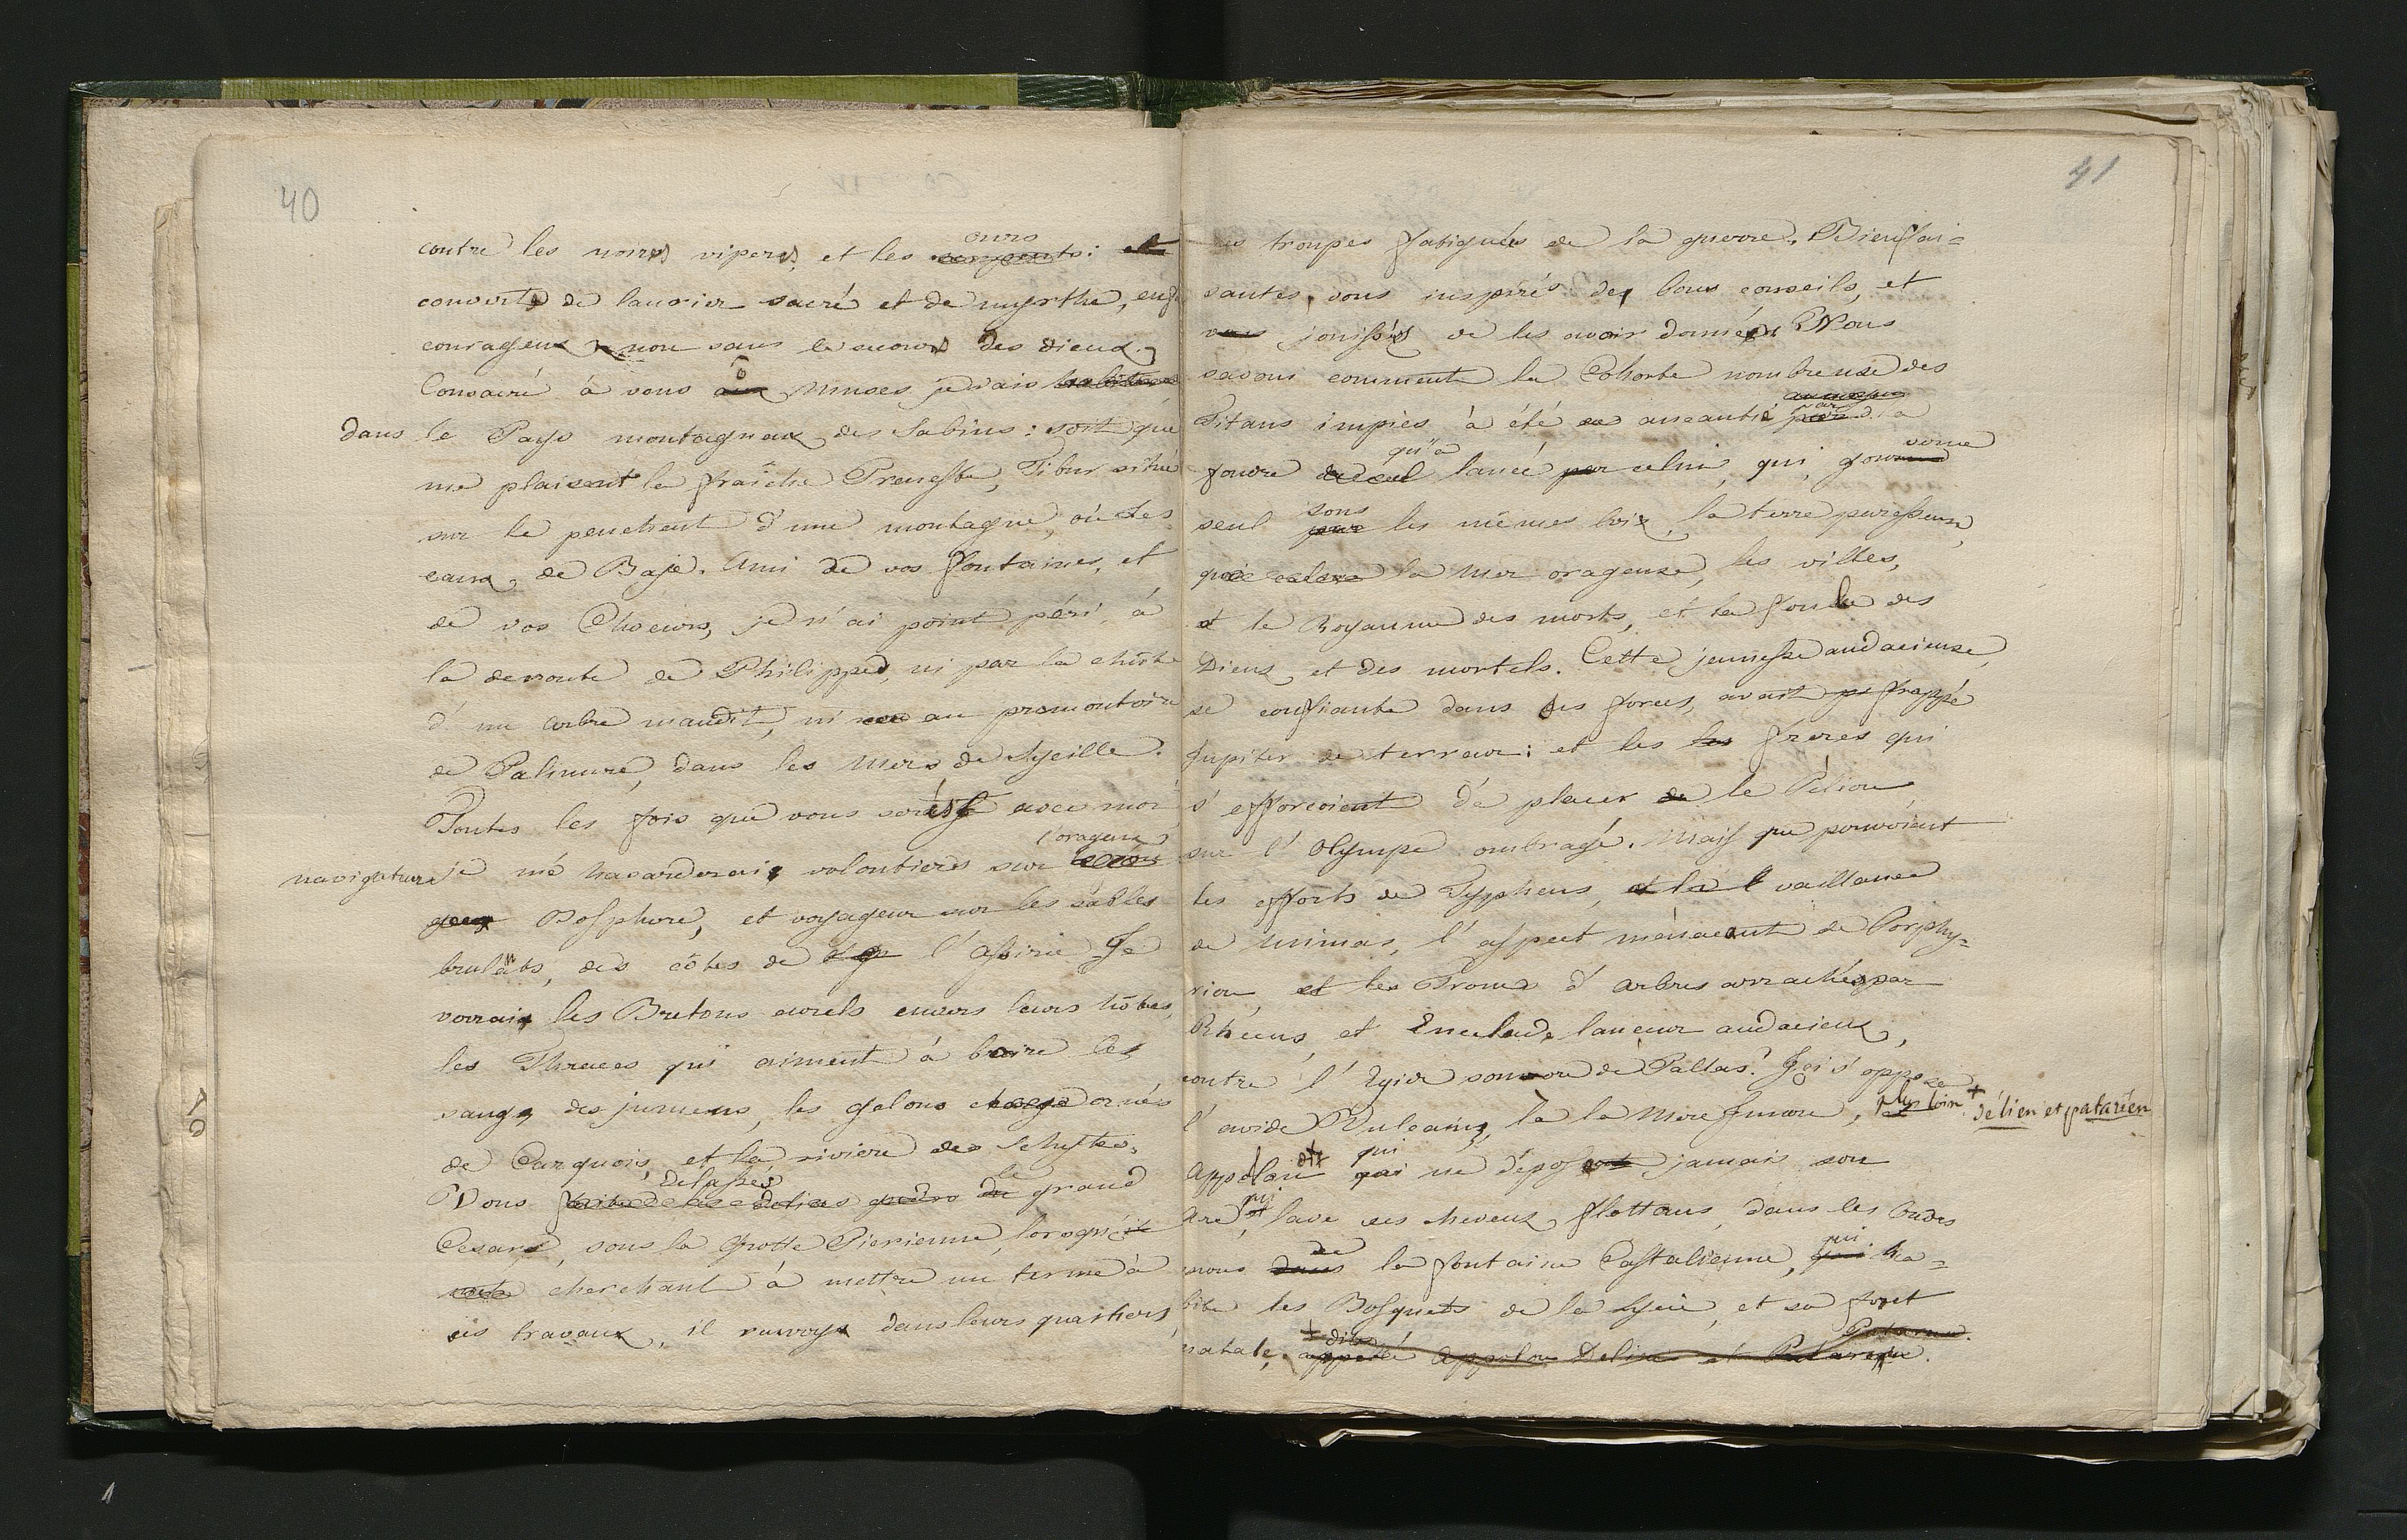 40
contre les noires viperes, et les ours
couverte de laurier sacré et de myrthe, enf
courageux non sans le secours des dieux.
Consacré à vous ô Muses, je vais
dans le Pays montagneux des Sabins: soit que
me plaisent la fraîche Preneste, Tibur situé
sur le penchant d'une montagne, où les
eaux, de Baje. Ami de vos fontaines, et
de vos Choeurs, je n'ai point péri, à
la deroute de Philippes, ni par la chûte
d'un arbre maudit, ni au promontoire
de Palinure, dans les Mers de Sycille.
Toutes les fois que vous serés avec moi
navigateur je me hasarderai volontiers sur l'orageux
Bosphore, et voyageur sur les sables
brulants, des côtes de l'Assirie. Je
verrai les Bretons cruels envers leurs hôtes,
les Thraces qui aiment à boire le
sang, des jumens, les gelons ornés
de Carquois, et la riviere des Schytes.
Vous delassés le grand
Cesar, sous la Grotte Pierienne, lorsque
cherchant à mettre un terme à
ses travaux, il renvoye dans leurs quartiers,
41
es troupes fatiguées de la guerre. Bienfai=
santes, vous inspirés des bons conseils, et
jouissés de les avoir donnés. Nous
savons comment la Cohorte nombreuse des
Titans impies à été aneantie par la
foudre qu'a lancé celui, qui, gouverne
seul sous les mêmes loix, la terre paresseuse,
la Mer orageuse, les villes,
et le Royaume des morts, et la foule des
Dieux, et des mortels. Cette jeunesse audacieuse,
se confiante dans ses forces, avait frappé
Jupiter de terreur: et les freres qui
s'efforcoient de placer le Pélion
sur l'Olympe ombragé. Mais que pouvoient
les efforts de Typheus, vaillance
de Mimas, l'aspect ménacant de Porphy=
rion, les Troncs d'arbres arrachés par
Rhecus, et Encelade lanceur audacieux,
contre l'Egide sonore de Pallas? Ici s'oppose
l'avide Vulcain, là la Mere Junon, plus loin + délien et patarèen
Appolon dit qui ne dépose jamais son
Arc, qui lave ses cheveux flottans, dans les Ondes
de la fontaine Castalienne, qui ha=
bite les Bosquets de la Lycie, et sa foret
natale.